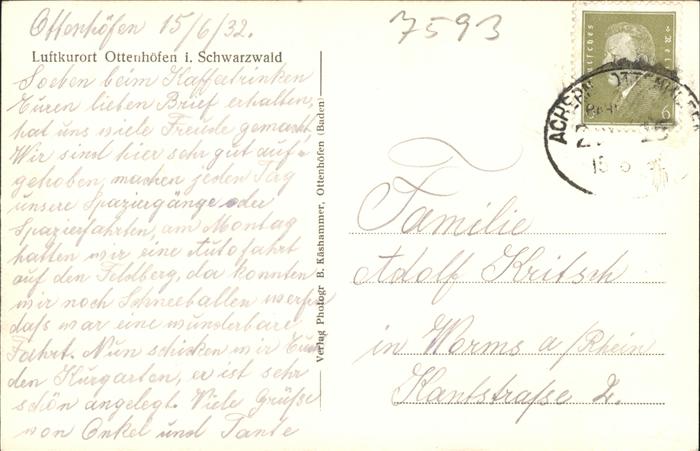 Ottenhöfen 15/6/32.
7593
Luftkurort Ottenhöfen i. Schwarzwald
Soeben beim Kaffeetrinken
Euren lieben Brief erhalten,
hat uns viele Freude gemacht,
Wir sind hier sehr gut auf-
gehoben, machen jeden Tag
unsere Spaziergänge oder
Spazierfahrten, am Montag
hatten wir eine Autofahrt
auf den Feldberg, da konnten
wir noch Schneeballen werfen
daß war eine wunderbare
Fahrt. Nun schicken wir Euch
den Kurgarten, er ist sehr
schön angelegt. Viele Grüße
von Onkel und Tante
Verlag Photogr B. Käshammer, Ottenhöfen (Baden)
Familie
Adolf Kritsch
in Worms a/Rhein
Kantstraße 2.
Deutsches Reich
6
ACHERN OTTENHÖFEN